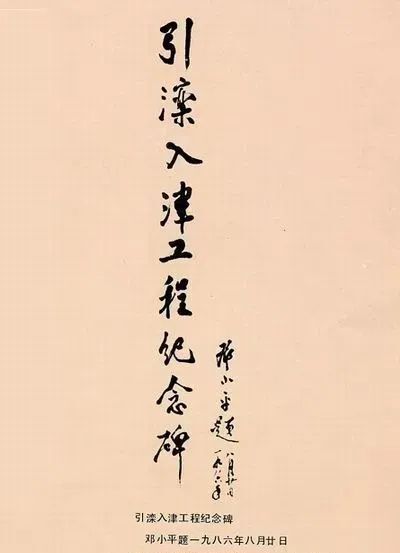 引滦入津工程纪念碑
邓小平题
一九八六年
八月廿日
引滦入津工程纪念碑
邓小平题一九八六年八月廿日